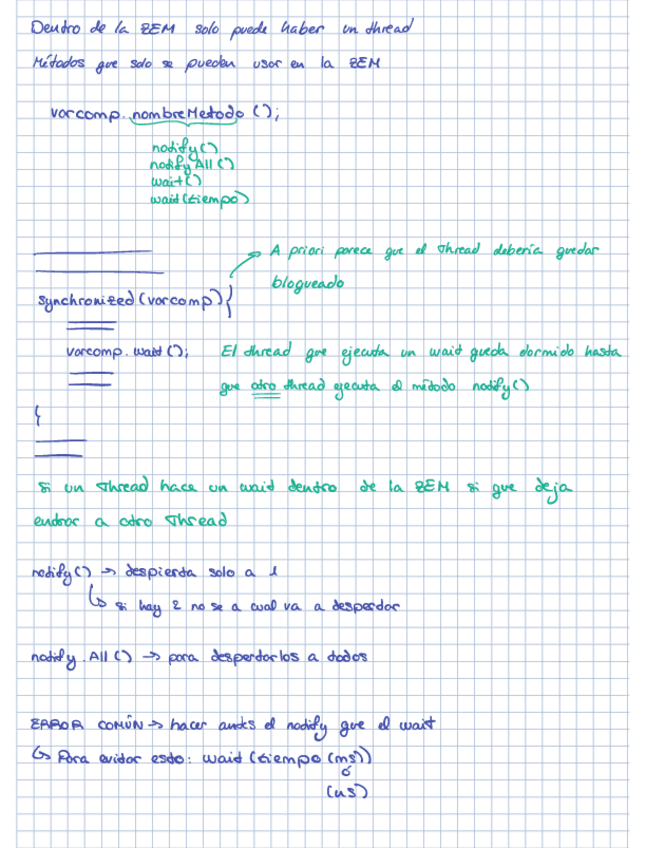 Dentro de la ZEM solo puede haber un thread
Métodos que solo se pueden usar en la ZEM
varcomp.nombreMetodo();
notify()
notifyAll()
wait()
wait(tiempo)
A priori parece que el Thread debería quedar
bloqueado
synchronized(varcomp){
varcomp.wait(); El thread que ejecuta un wait queda dormido hasta
que otro thread ejecuta el método notify()
{
Si un Thread hace un wait dentro de la ZEM si que deja
entrar a otro Thread
notify() → despierta solo a 1
↳ si hay 2 no se a cual va a despertar
notify.All() → para despertarlos a todos
ERROR COMÚN → hacer antes el notify que el wait
↳ Para evitar esto: wait(tiempo(ms))
ó
(us)